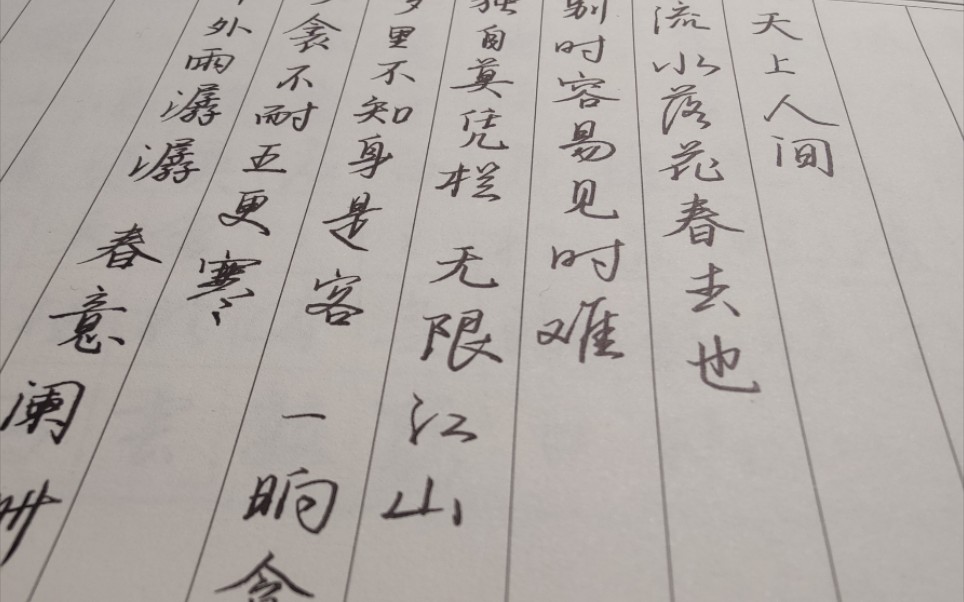 外雨潺潺 春意阑
衾不耐五更寒
里不知身是客 一晌贪
独自莫凭栏 无限江山
别时容易见时难
流水落花春去也
天上人间